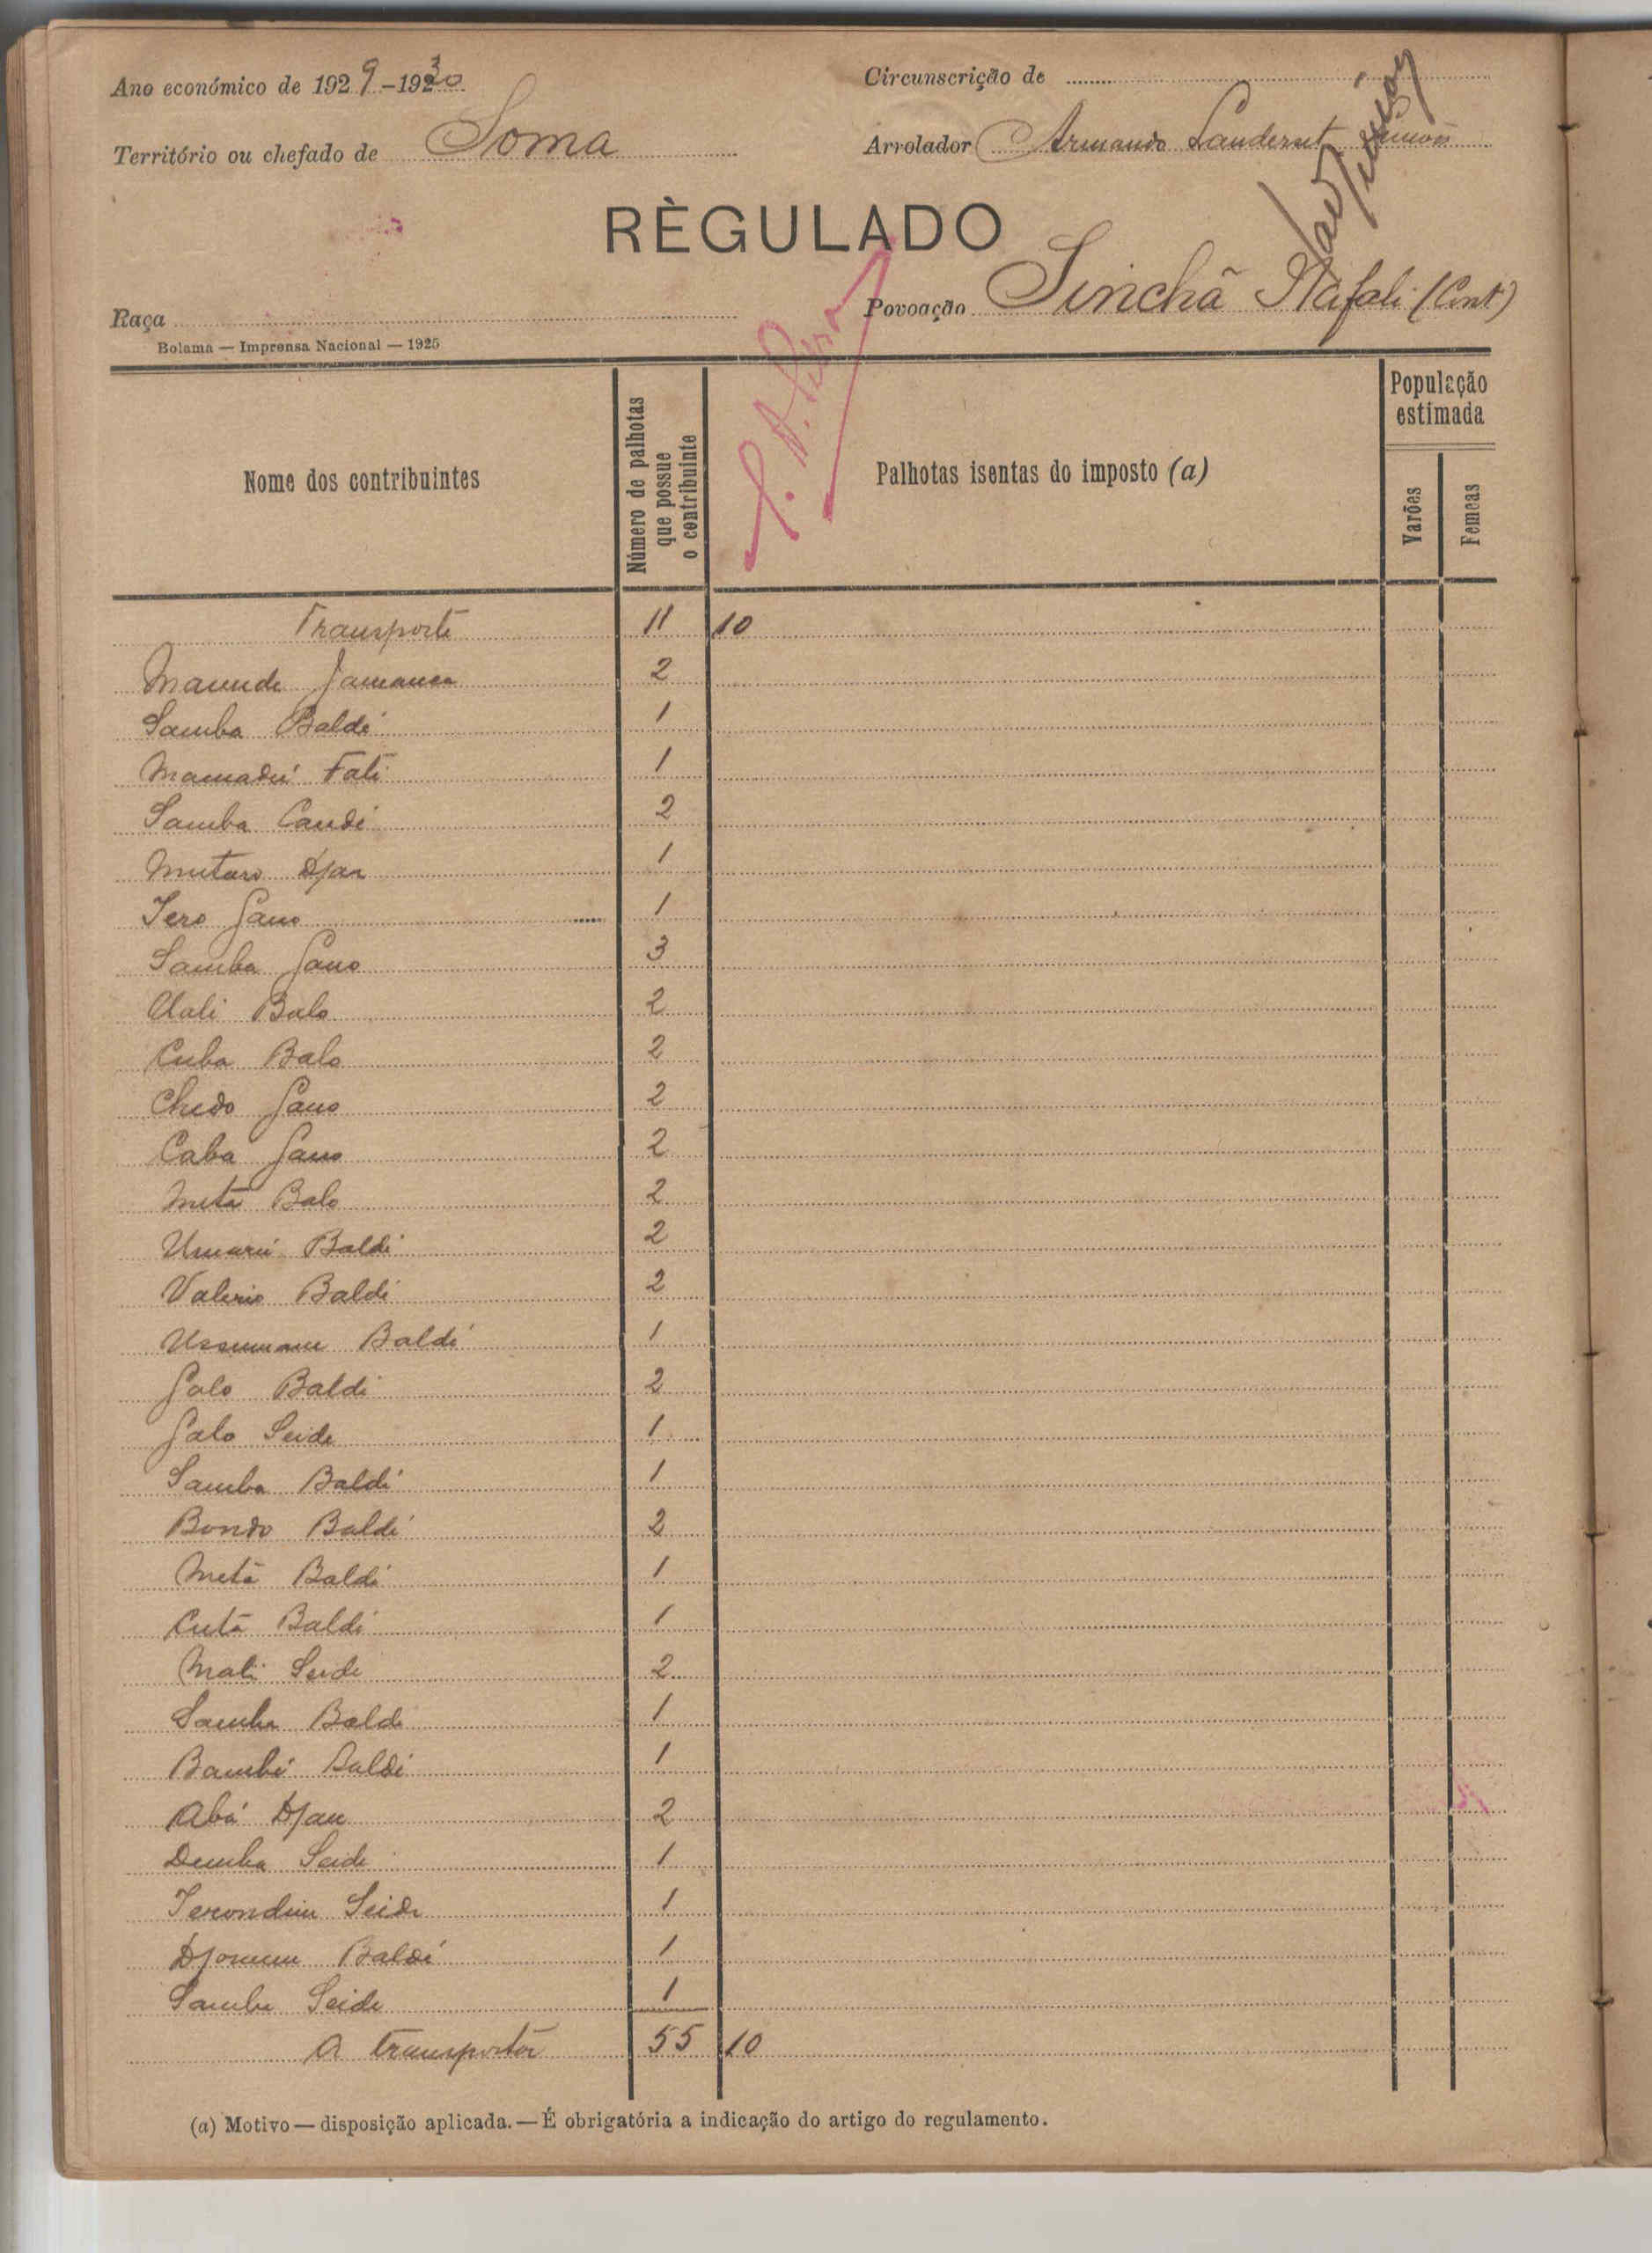 Ano económico de 1929-1930
Circunscrição de
Território ou chefado de Soma
Arrolador Armando Landerset Simões
RÈGULADO
Raça
Povoação Sinchã Rafali (Cont)
Bolama — Imprensa Nacional — 1925
Nome dos contribuintes
Número de palhotas que possue o contribuinte
Palhotas isentas do imposto (a)
População estimada
Varões
Femeas
Transporte 11 10
Maunde Jamanca 2
Samba Baldé 1
Mamadú Fati 1
Samba Candé 2
Mutaro Djau 1
Iero Gano 1
Samba Gano 3
Uali Balo 2
Cuba Balo 2
Chedo Gano 2
Caba Gano 2
Metá Balo 2
Umarú Baldé 2
Valerio Baldé 2
Ussumane Baldé 1
Galo Baldé 2
Galo Seide 1
Samba Baldé 1
Bondo Baldé 2
Metá Baldé 1
Cutá Baldé 1
Mali Seide 2
Samba Baldé 1
Bambé Baldé 1
Abú Djau 2
Demba Seide 1
Seide 1
Baldé 1
Samba Seide 1
A transportar 55 10
(a) Motivo — disposição aplicada. — É obrigatória a indicação do artigo do regulamento.